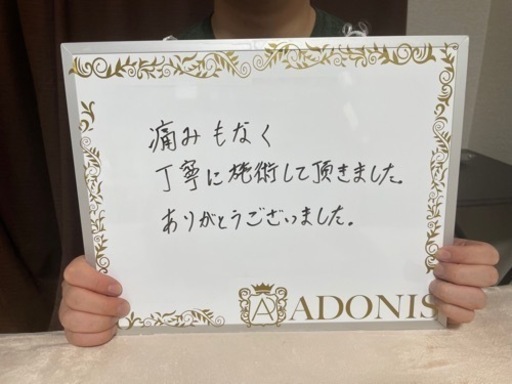 痛みもなく
丁寧に施術して頂きました。
ありがとうございました。
A ADONIS